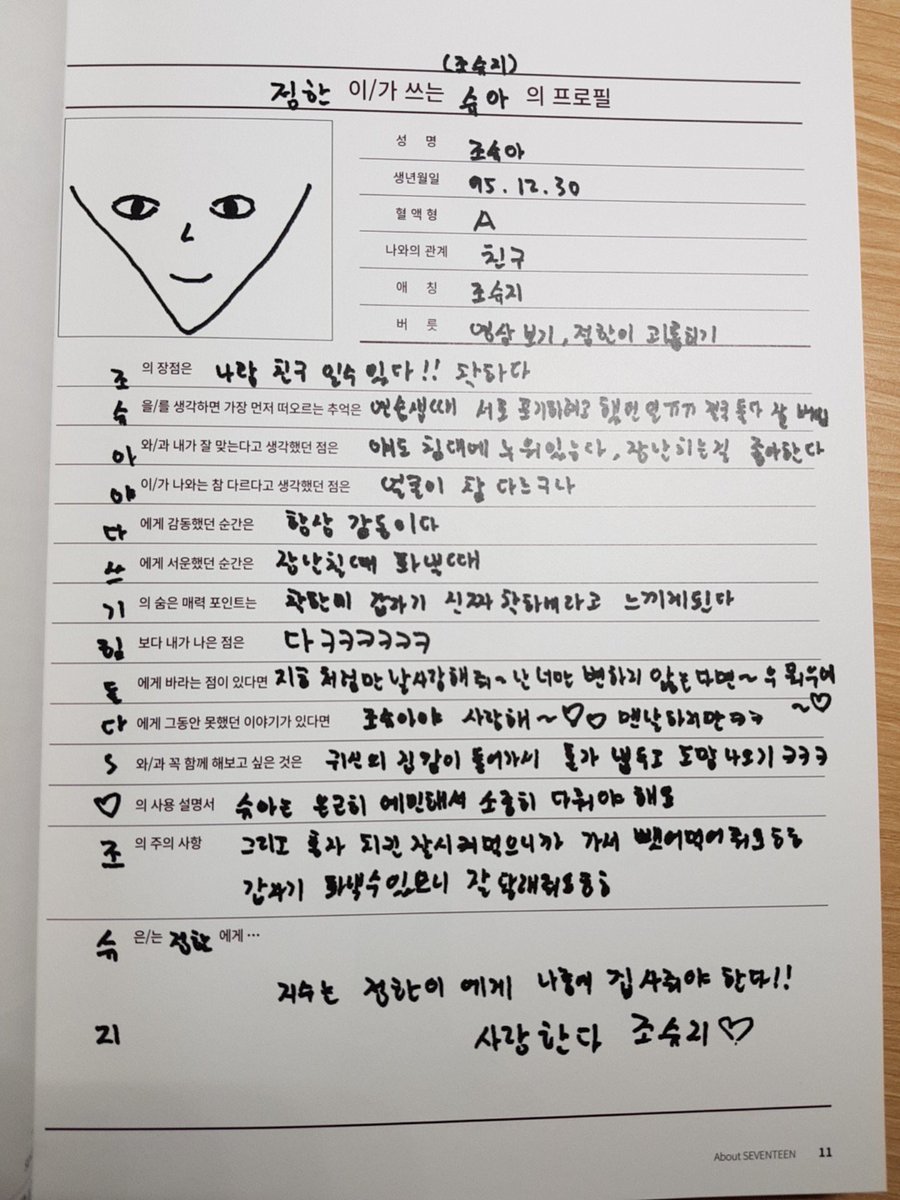 (조슈지)
정한 이/가 쓰는 슈아 의 프로필
성 명 조슈아
생년월일 95.12.30
혈액형 A
나와의 관계 친구
애 칭 조슈지
버 릇 영상 보기, 정한이 괴롭히기
조 의 장점은 나랑 친구 일수 있다!! 착하다
슈 을/를 생각하면 가장 먼저 떠오르는 추억은 연습생때 서로 포기하려고 했던 연기가 결국 둘다 잘 버팀
아 와/과 내가 잘 맞는다고 생각했던 점은 얘도 침대에 누워있는다, 장난치는걸 좋아한다
야 이/가 나와는 참 다르다고 생각했던 점은 얼굴이 참 다르구나
다 에게 감동했던 순간은 항상 감동이다
쓰 에게 서운했던 순간은 장난칠때 화낼때
기 의 숨은 매력 포인트는 착한데 갑자기 진짜 착하네라고 느끼게된다
힘 보다 내가 나은 점은 다ㅋㅋㅋㅋㅋㅋ
든 에게 바라는 점이 있다면 지금 처럼만 날 사랑해줘~ 난 너만 변하지 않는다면~ 우 뭐우예
다 에게 그동안 못했던 이야기가 있다면 조슈아야 사랑해~♡♡ 맨날하지만ㅋㅋ ~♡
S 와/과 꼭 함께 해보고 싶은 것은 귀신의 집같이 들어가서 혼자 냅두고 도망 나오기 ㅋㅋㅋ
♡ 의 사용 설명서 슈아는 은근히 예민해서 소중히 다뤄야 해요
조 의 주의 사항 그리고 혼자 치킨 잘시켜먹으니까 가서 뺏어먹어줘요ㅎㅎ
갑자기 화낼수있으니 잘 달래줘요ㅎㅎ
슈 은/는 정한 에게…
지수는 정한이 에게 나중에 집 사줘야 한다!!
지 사랑한다 조슈지♡
About SEVENTEEN 11